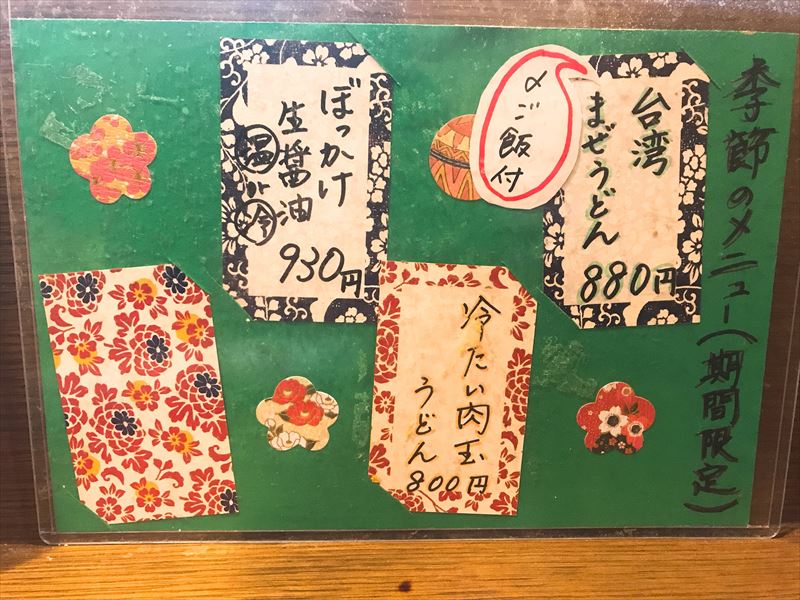 季節のメニュー(期間限定)
台湾
まぜうどん
880円
〆ご飯付
ぼっかけ
生醤油
温or冷
930円
冷たい肉玉
うどん
800円